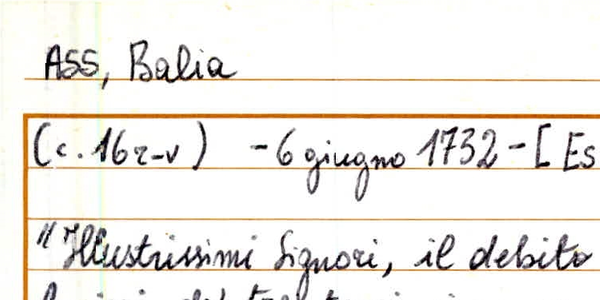 ASS, Balia
(c. 16r-v) - 6 giugno 1732 - [ Es
"Illustrissimi Signori, il debito